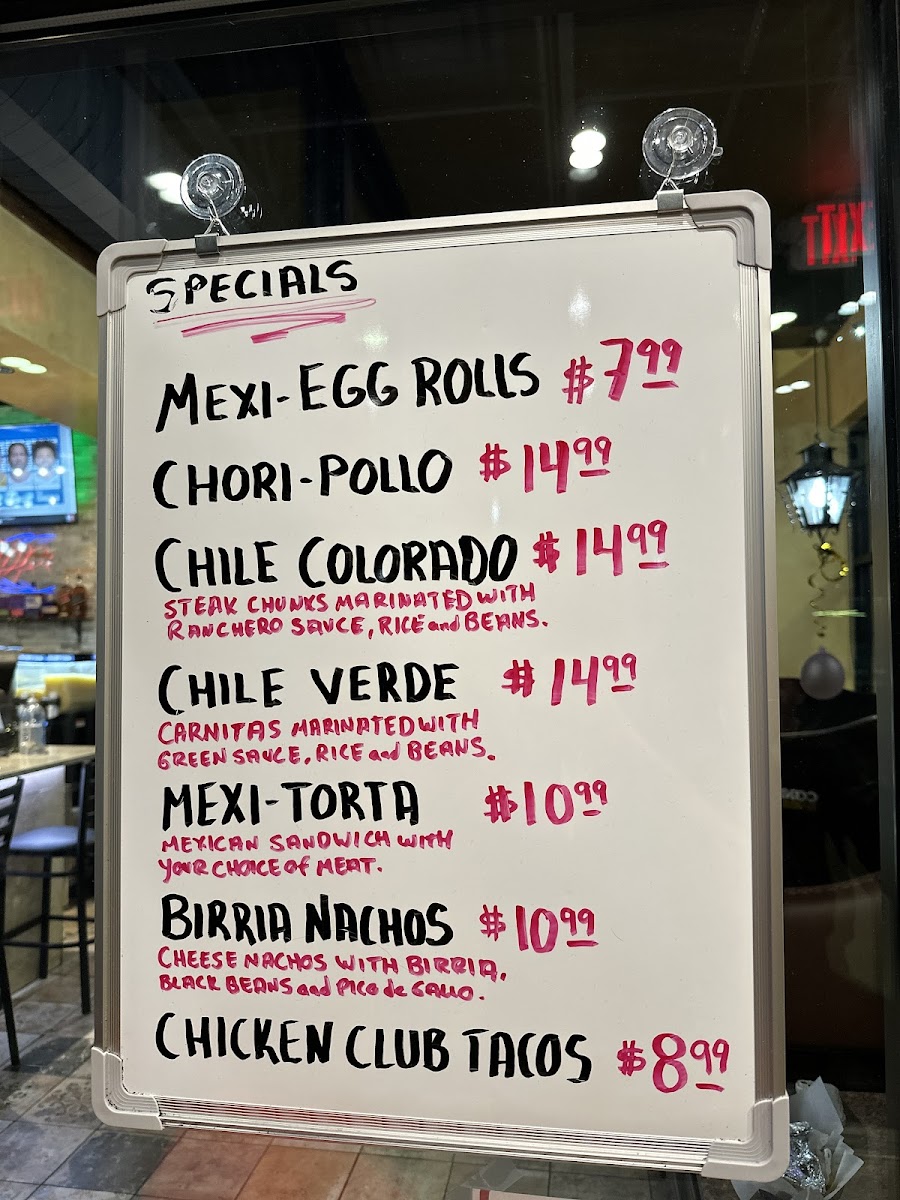 SPECIALS
MEXI-EGG ROLLS $7.99
CHORI-POLLO $14.99
CHILE COLORADO $14.99
STEAK CHUNKS MARINATED WITH
RANCHERO SAUCE, RICE and BEANS.
CHILE VERDE $14.99
CARNITAS MARINATED WITH
GREEN SAUCE, RICE and BEANS.
MEXI-TORTA $10.99
MEXICAN SANDWICH WITH
YOUR CHOICE of MEAT.
BIRRIA NACHOS $10.99
CHEESE NACHOS WITH BIRRIA,
BLACK BEANS and PICO de GALLO.
CHICKEN CLUB TACOS $8.99
EXIT